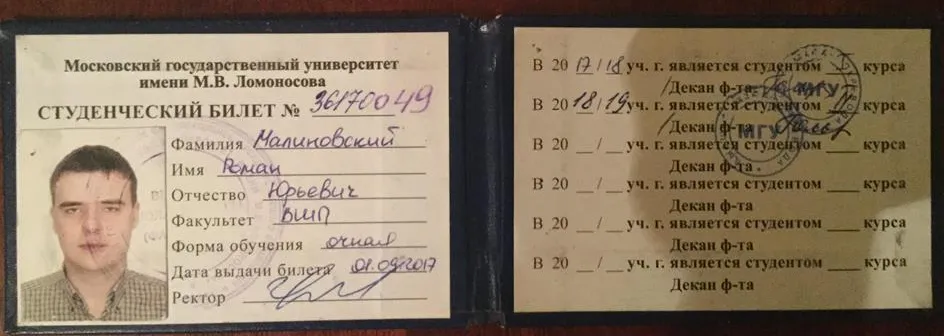 Московский государственный университет
имени М.В. Ломоносова
СТУДЕНЧЕСКИЙ БИЛЕТ № 36170049
Фамилия Малиновский
Имя Роман
Отчество Юрьевич
Факультет ВШП
Форма обучения очная
Дата выдачи билета 01.09.2017
Ректор
В 20 17/18 уч. г. является студентом I курса
Декан ф-та
В 20 18/19 уч. г. является студентом II курса
Декан ф-та
В 20 __/__ уч. г. является студентом ___ курса
Декан ф-та
В 20 __/__ уч. г. является студентом ___ курса
Декан ф-та
В 20 __/__ уч. г. является студентом ___ курса
Декан ф-та
В 20 __/__ уч. г. является студентом ___ курса
Декан ф-та
МГУ
МГУ